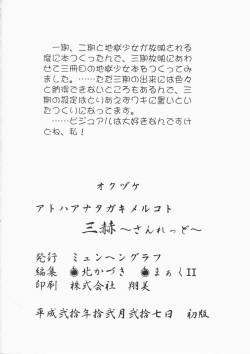 一期、二期と地獄少女が放映される
度に本つくったんで、三期放映にあわ
せて三冊目の地獄少女本をつくってみ
ました。……ただ三期の出来には色々
と納得できないところもあるんで、三
期の設定はとりあえずワキに置いとい
たつくりになってます。
……ビジュアルは大好きなんですけ
どね、私！
オクヅケ
アトハアナタガキメルコト
三赫～さんれっど～
発行 ミュンヘングラフ
編集 北かづき まぁくII
印刷 株式会社 翔美
平成弐拾年拾弐月弐拾七日 初版